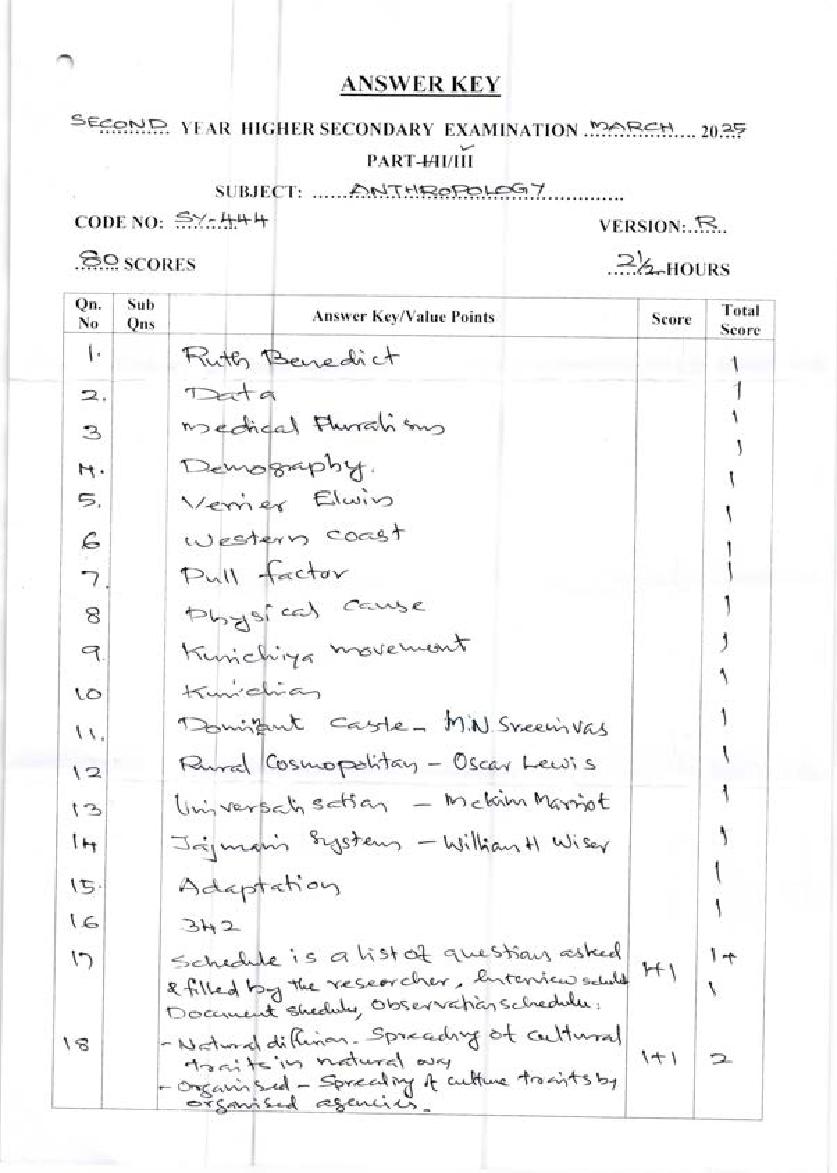 ANSWER KEY
SECOND YEAR HIGHER SECONDARY EXAMINATION MARCH 2025
PART-I/II/III
SUBJECT: ANTHROPOLOGY
CODE NO: SY-444 VERSION: R
80 SCORES 2½ HOURS
Qn. No Sub Qns Answer Key/Value Points Score Total Score
1. Ruth Benedict 1
2. Data 1
3 Medical Pluralism 1
4. Demography. 1
5. Verrier Elwin 1
6 Western coast 1
7. Pull factor 1
8 Physical cause 1
9 Kurichiya movement 1
10 Kurichian 1
11. Dominant Caste - M.N. Sreenivas 1
12 Rural Cosmopolitan - Oscar Lewis 1
13 Universalisation - Mckim Marriot 1
14 Jajmani System - William H Wiser 1
15. Adaptation 1
16 342 1
17 Schedule is a list of question asked 1+1 1+
& filled by the researcher. Interview schedule 1
Document shedule, Observation schedule.
18 - Natural diffusion - Spreading of cultural
traits in natural way 1+1 2
- Organised - Spreading of culture traits by
organised agencies.